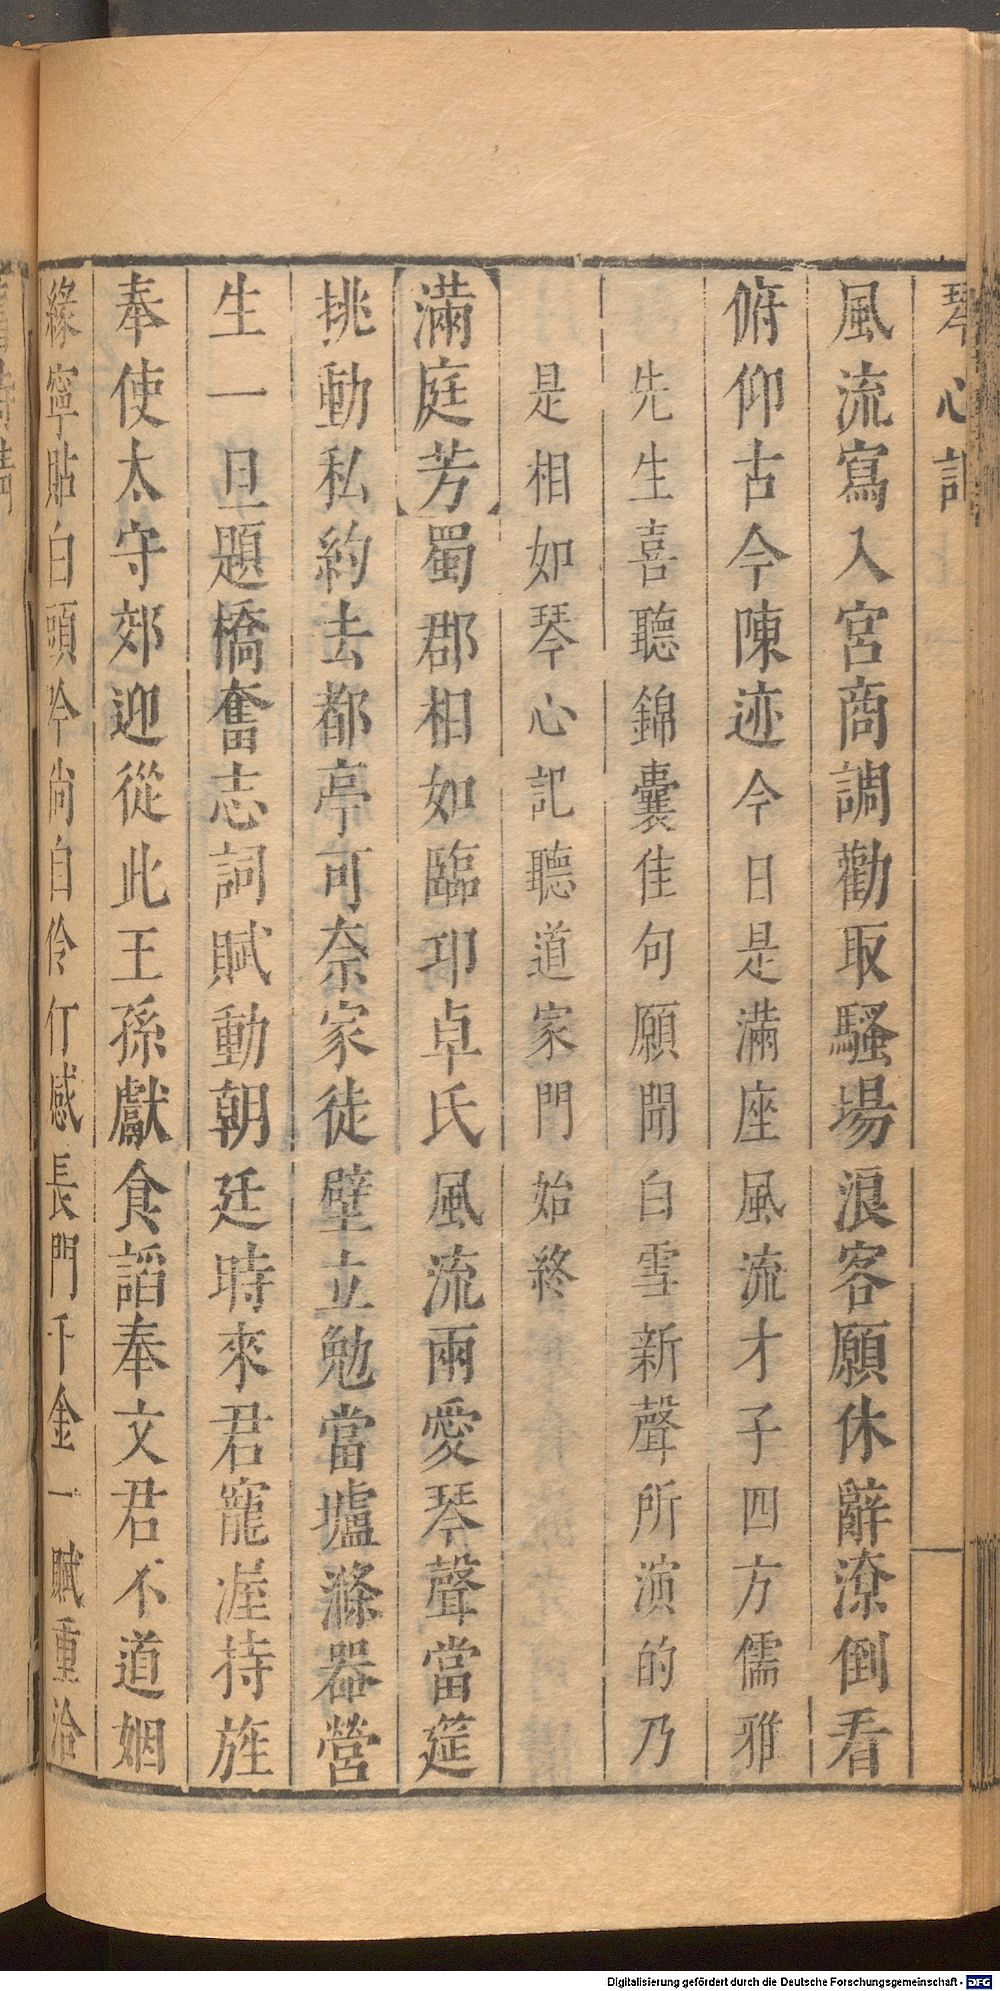 琴心記
風流寫入宮商調勸取騷場浪客願休辭潦倒看
俯仰古今陳迹今日是滿座風流才子四方儒雅
先生喜聽錦囊佳句願聞白雪新聲所演的乃
是相如琴心記聽道家門始終
滿庭芳蜀郡相如臨邛卓氏風流兩愛琴聲當筵
挑動私約去都亭可奈家徒壁立勉當壚滌器營
生一旦題橋奮志詞賦動朝廷時來君寵渥持旌
奉使太守郊迎從此王孫獻食謟奉文君不道姻
緣寧貼白頭吟尚自伶仃感長門千金一賦重洽
Digitalisierung gefördert durch die Deutsche Forschungsgemeinschaft - DFG